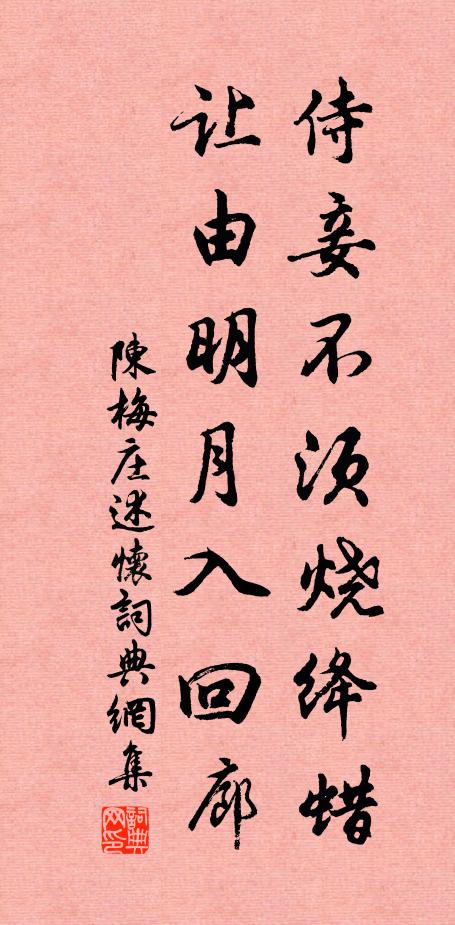 侍妾不须烧绛蜡
让由明月入回廊
陳梅庄述懷詞典網集
詞典网印